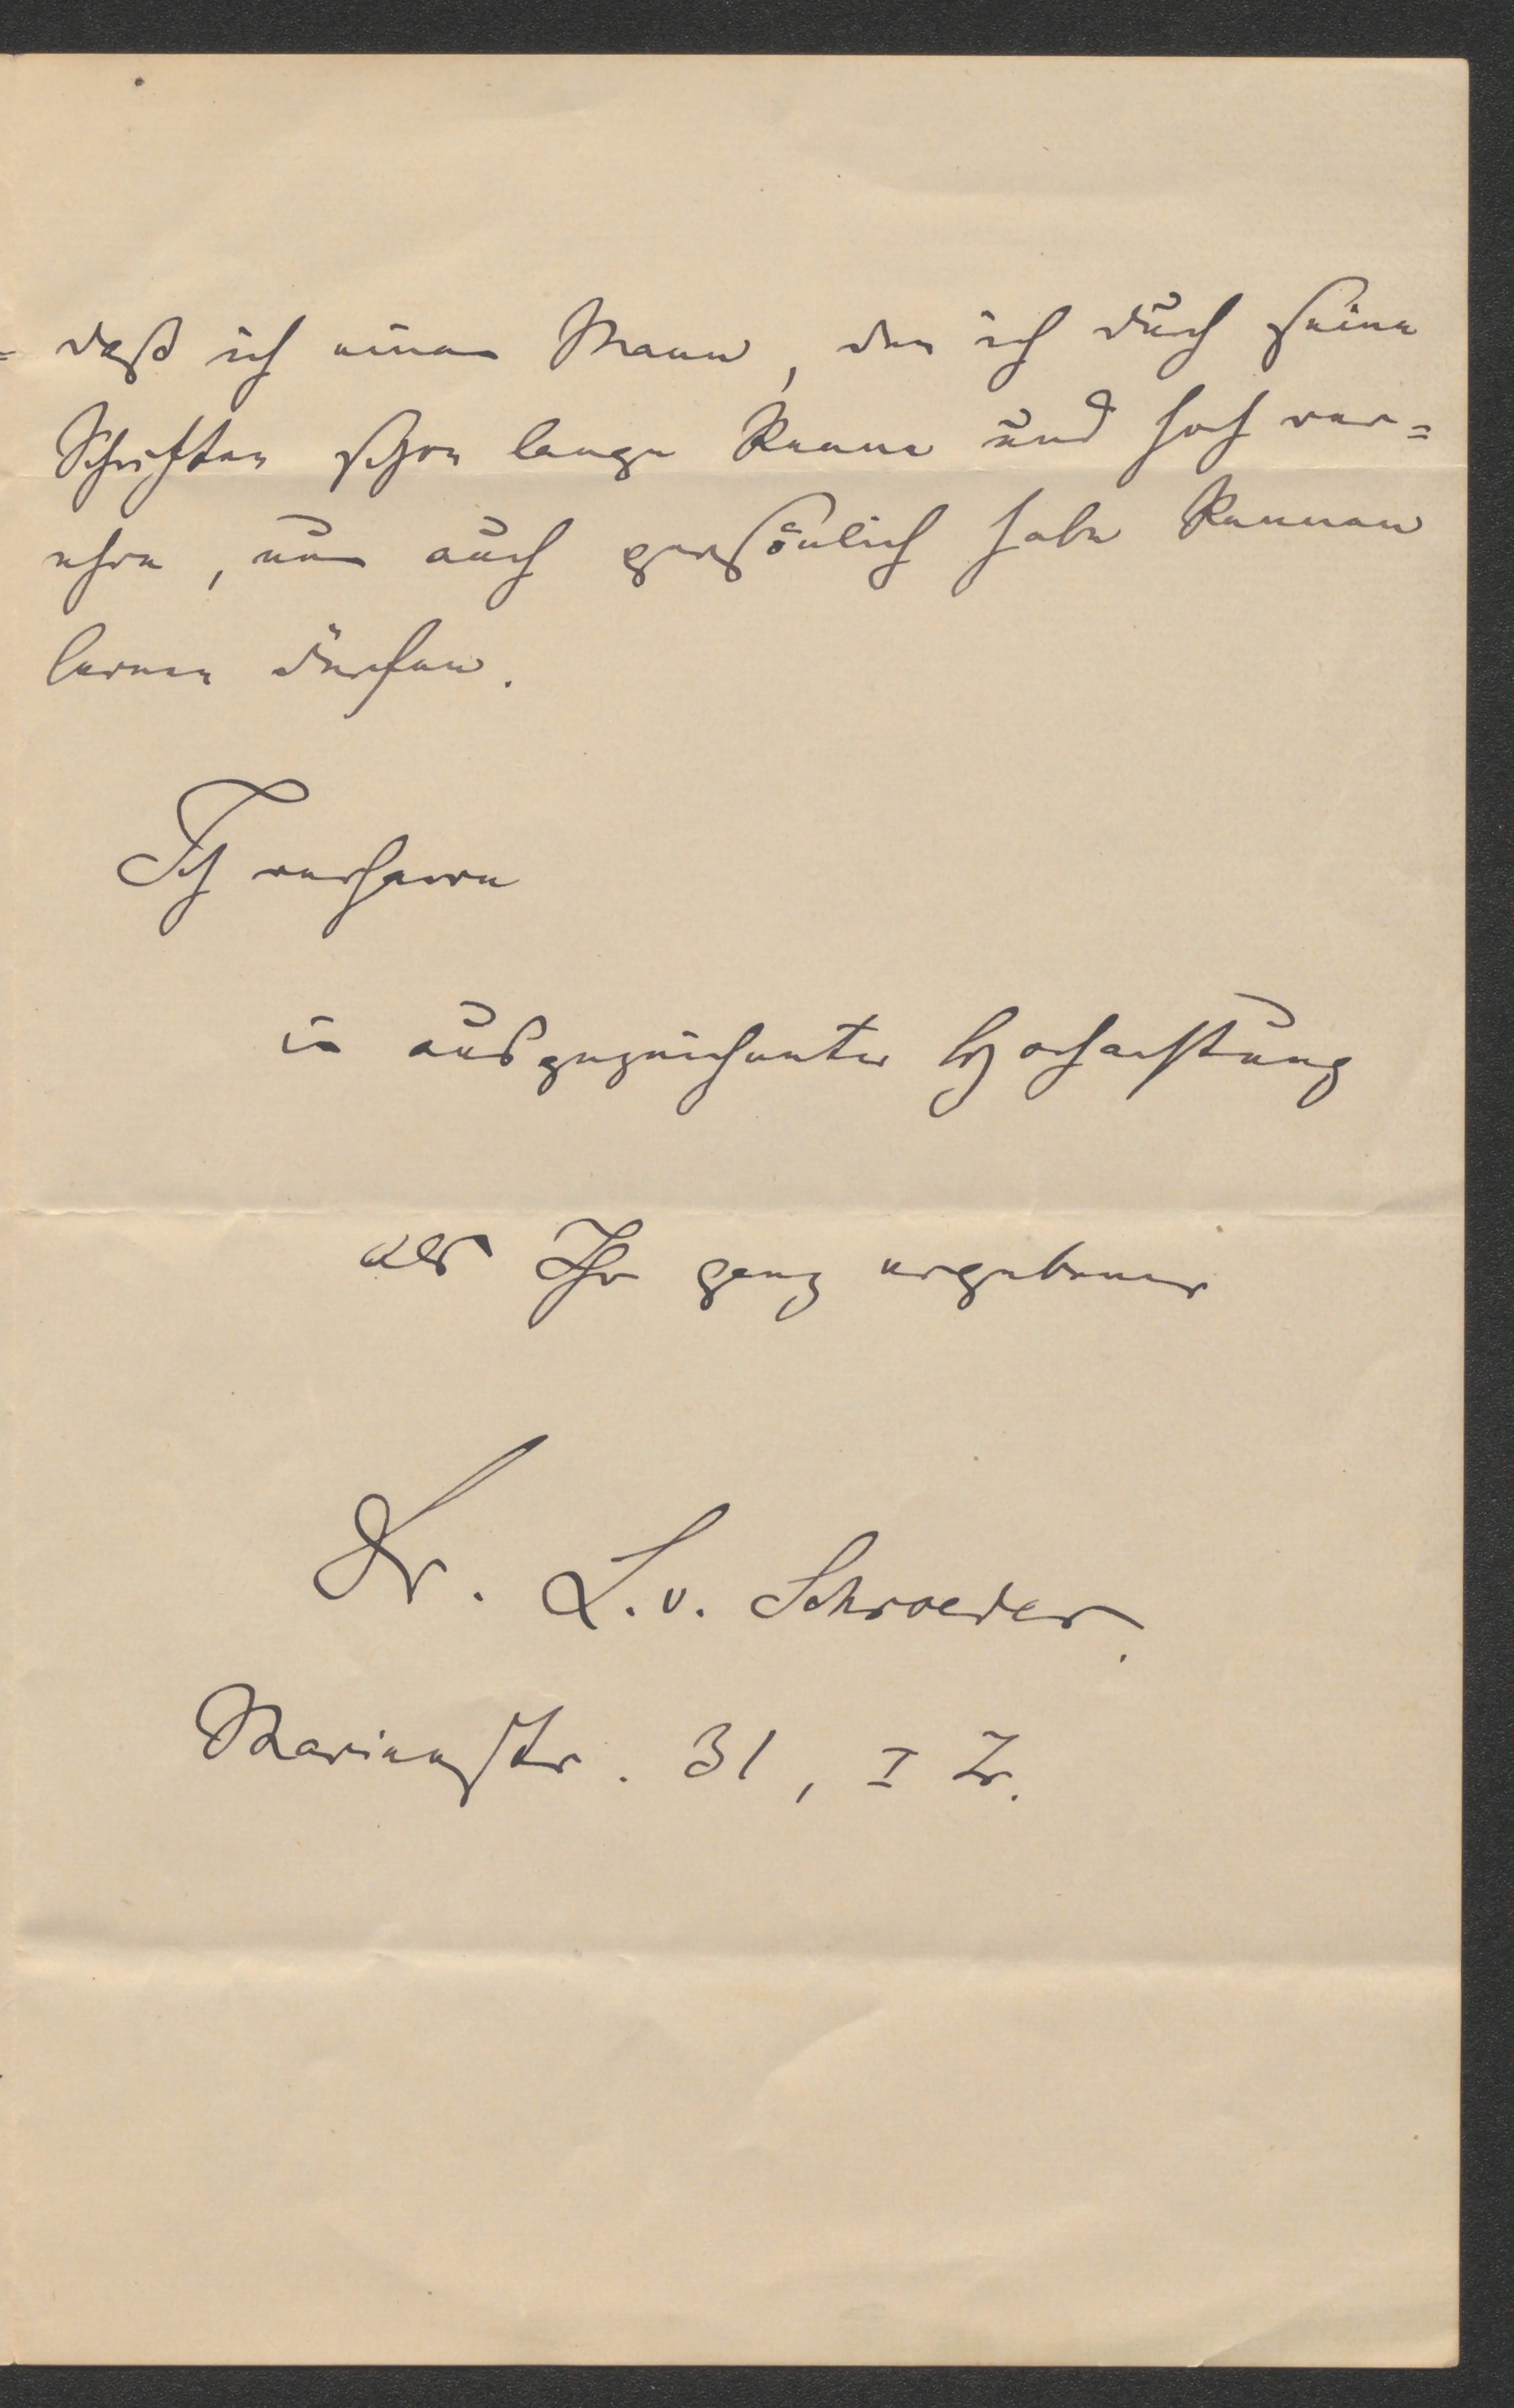 daß ich einen Mann, den ich durch seine
Schriften schon lange kenne und hoch ver=
ehre, nun auch persönlich habe kennen
lernen dürfen.
Ich verharre
in ausgezeichneter Hochachtung
als Ihr ganz ergebener
Dr. L. v. Schroeder.
Marienstr. 31, I Tr.